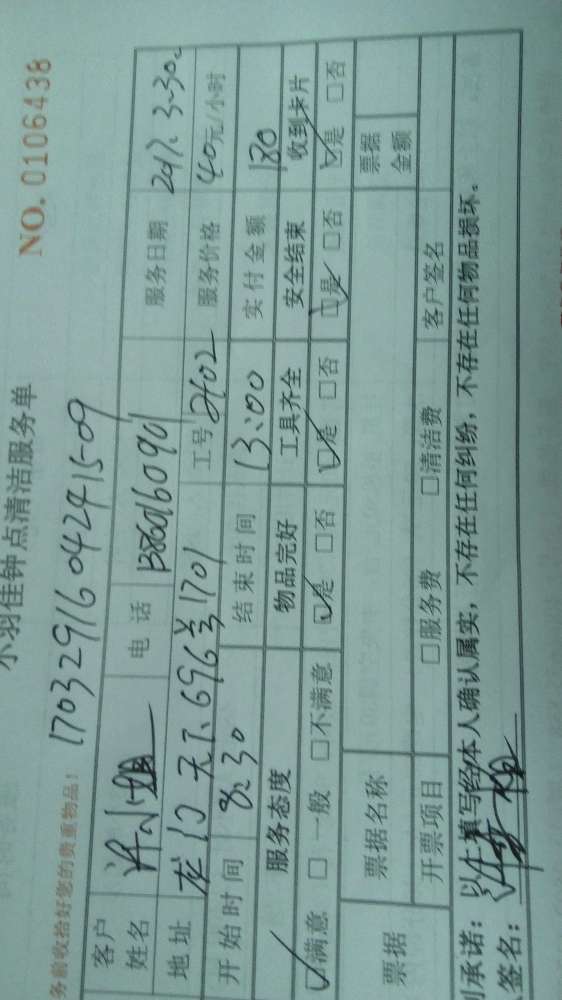 小羽佳钟点清洁服务单
NO. 0106438
务前收拾好您的贵重物品!
客户姓名 许小姐 电话 服务日期 2017.3.30.
地址 龙门天下696号1701 工号 服务价格 40元/小时
开始时间 8:30 结束时间 13:00 实付金额 180
服务态度 物品完好 工具齐全 安全结束 收到卡片
☑满意 □一般 □不满意 ☑是 □否 ☑是 □否 ☑是 □否 ☑是 □否
票据 票据名称 票据金额
开票项目 □服务费 □清洁费 客户签名
承诺:以上填写经本人确认属实,不存在任何纠纷,不存在任何物品损坏。
签名: